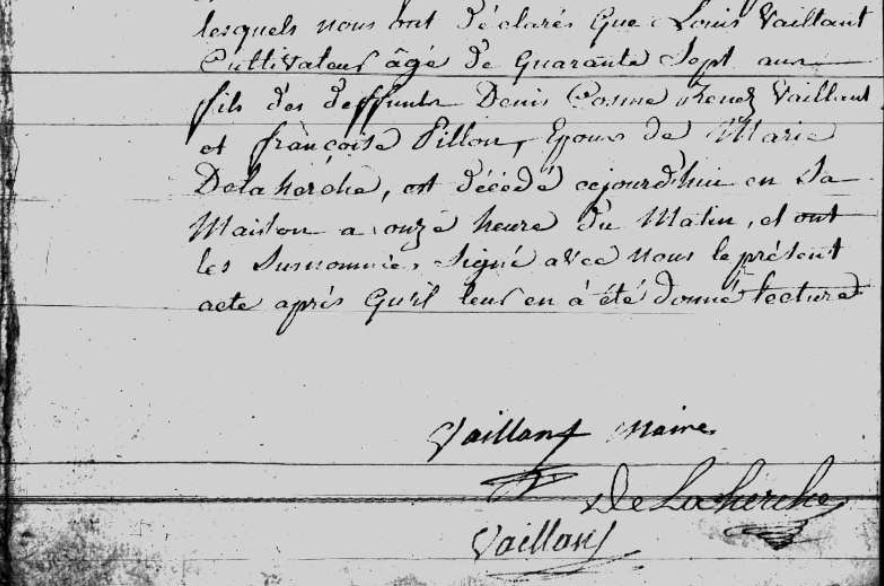 lesquels nous ont déclarés que Louis Vaillant
Cultivateur âgé de quarante Sept ans
fils des deffunts Denis Cosme René Vaillant
et françoise Pillon, Epoux de Marie
Delaherche, est décédé cejourd'hui en Sa
Maison a onze heure du Matin, et ont
les Susnommées Signé avec nous le présent
acte après qu'il leur en à été donné lecture
Vaillant Maire
De Laherche
Vaillant